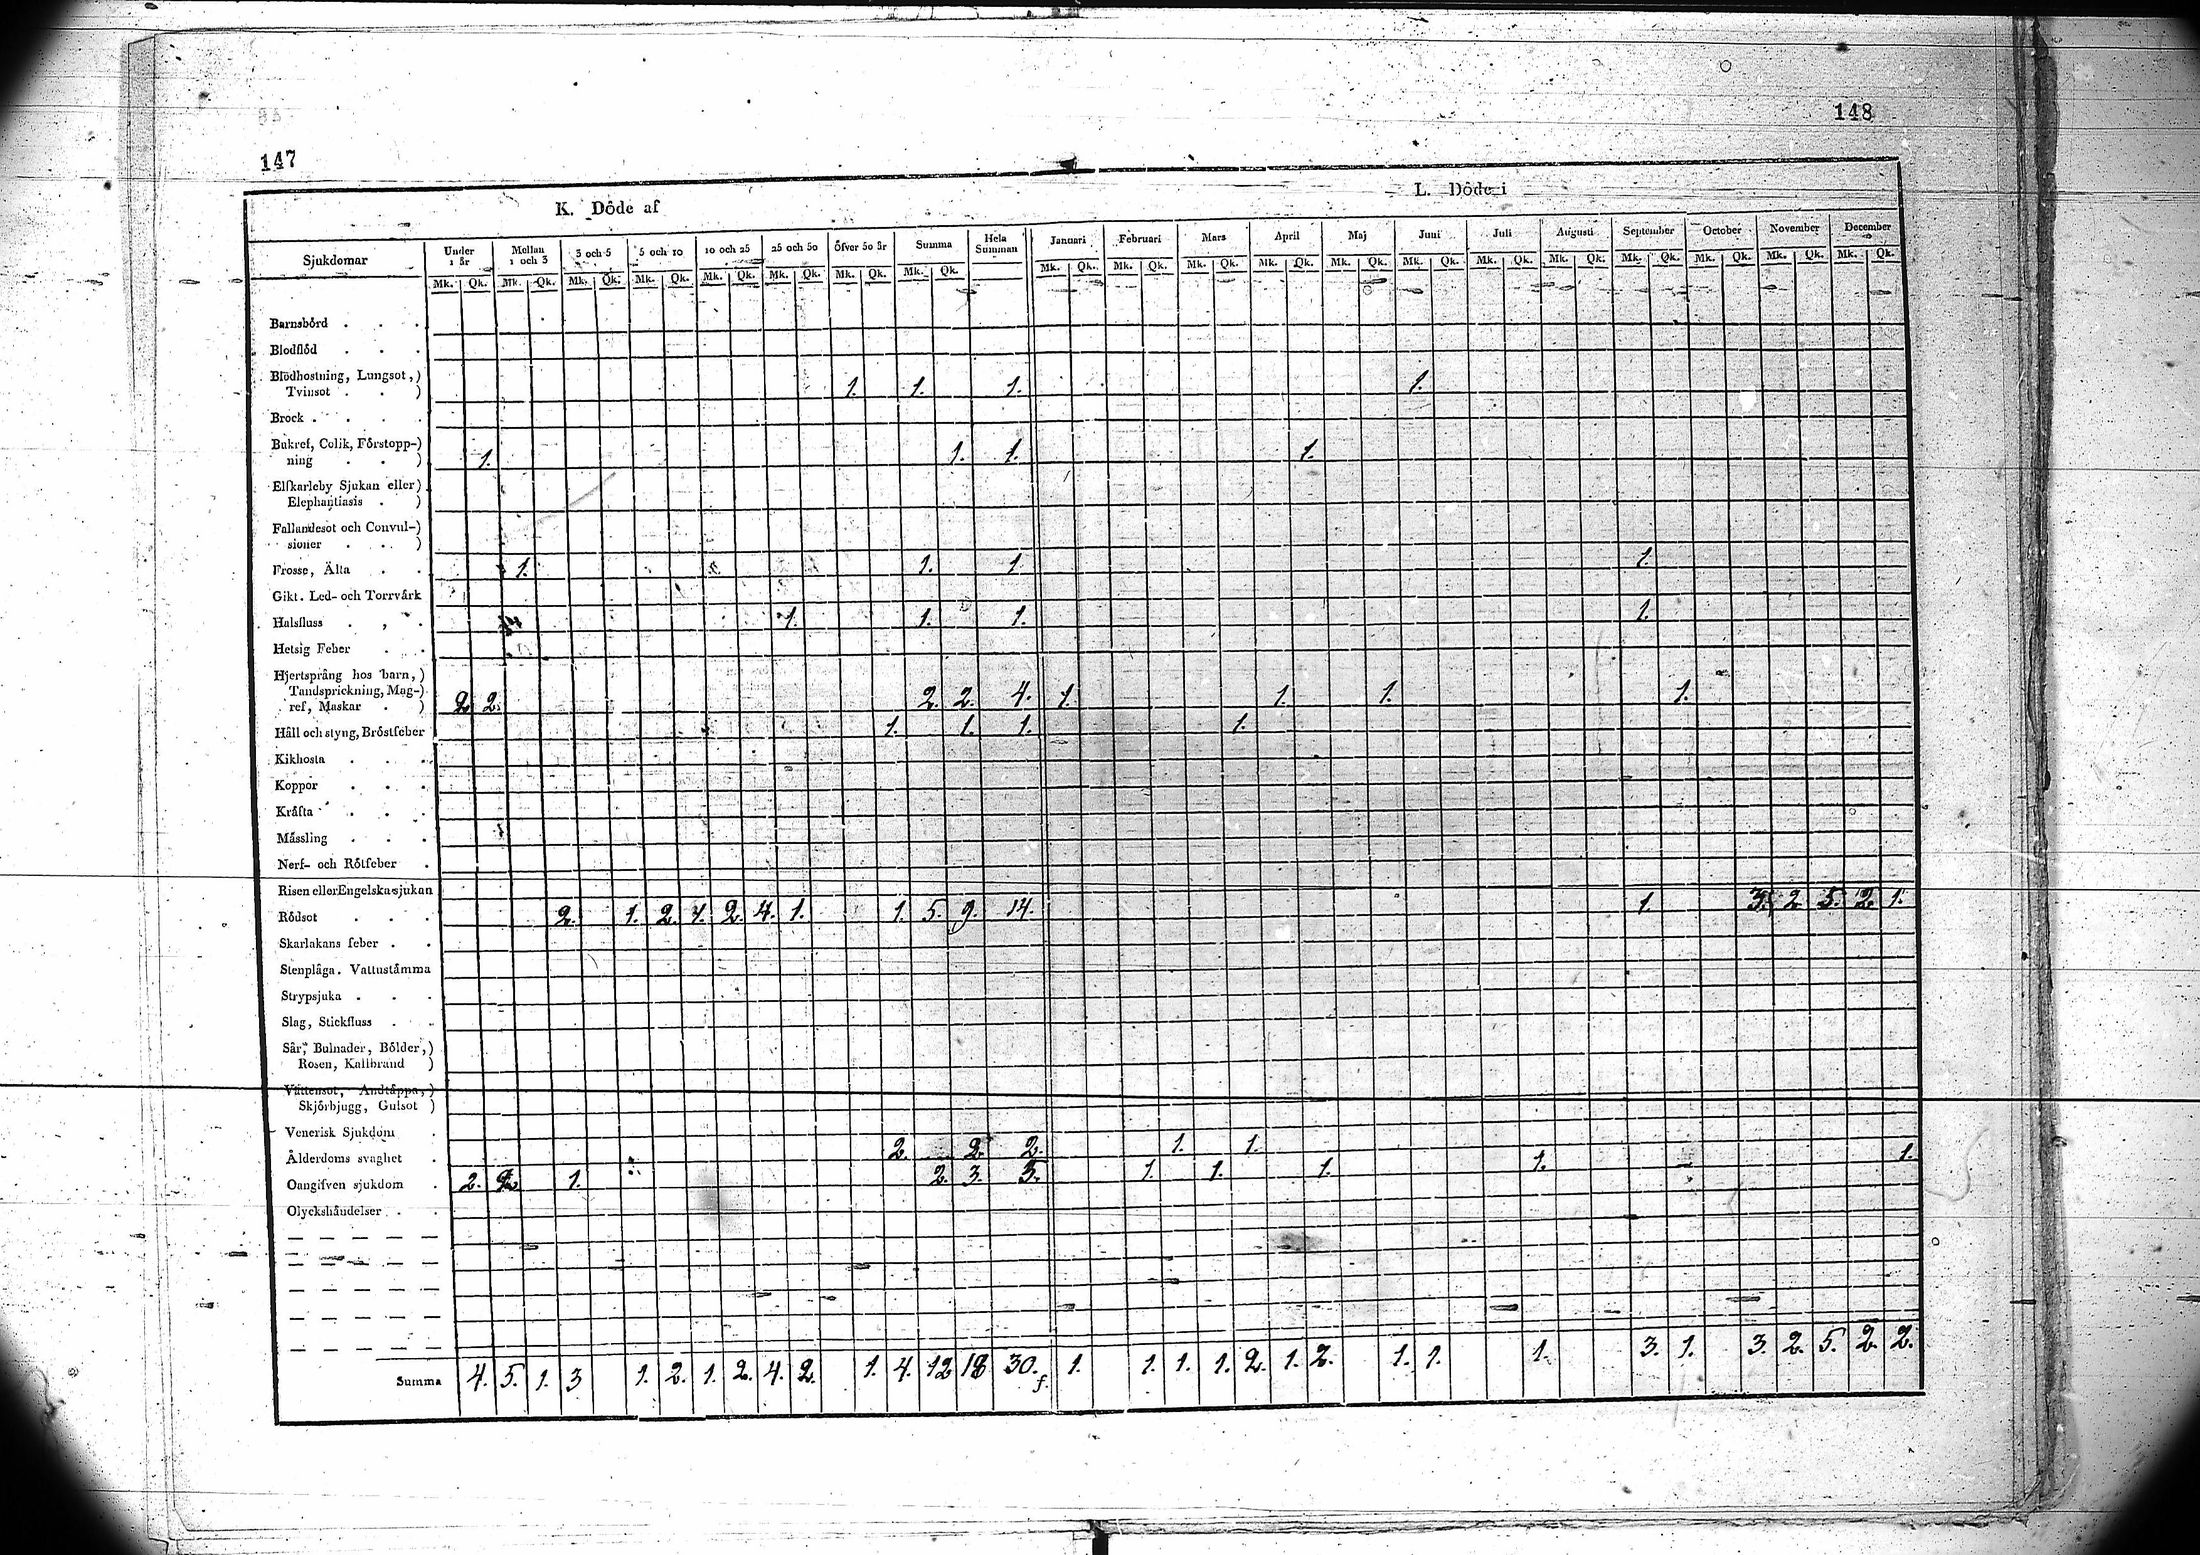 148
147
K. Döde af
L. Döde i
Sjukdomar Under 1 år Mellan 1 och 3 3 och 5 5 och 10 10 och 25 25 och 50 Öfver 50 år Summa Hela Summan Januari Februari Mars April Maj Juni Juli Augusti September October November December
Mk. Qk. Mk. Qk. Mk. Qk. Mk. Qk. Mk. Qk. Mk. Qk. Mk. Qk. Mk. Qk. Mk. Qk. Mk. Qk. Mk. Qk. Mk. Qk. Mk. Qk. Mk. Qk. Mk. Qk. Mk. Qk. Mk. Qk. Mk. Qk. Mk. Qk. Mk. Qk.
Barnsbörd . . .
Blodflöd . . .
Blödhostning, Lungsot,)
Tvinsot . . ) 1. 1. 1. 1.
Brock . . . .
Bukref, Colik, Förstopp-)
ning . . ) 1. 1. 1. 1.
Elfkarleby Sjukan eller)
Elephantiasis . )
Fallandesot och Convul-)
sioner . . )
Frosse, Älta . . 1. 1. 1 1.
Gikt. Led- och Torrvärk
Halsfluss . , . 1. 1. 1. 1.
Hetsig Feber . .
Hjertsprång hos barn,)
Tandsprickning, Mag-)
ref, Maskar . ) 2 2. 2. 2. 4. 1. 1. 1. 1.
Håll och styng, Bröstfeber 1. 1. 1. 1.
Kikhosta . . .
Koppor . . .
Kräfta . . .
Mässling . . .
Nerf- och Rötfeber .
Risen eller Engelska sjukan
Rödsot . . . 2. 1. 2. 1. 2. 4. 1. 1. 5. 9. 14. 1. 3. 2. 5. 2. 1.
Skarlakans feber . .
Stenplåga. Vattustämma
Strypsjuka . . .
Slag, Stickfluss . .
Sår, Bulnader, Bölder,)
Rosen, Kallbrand )
Vattensot, Andtäppa,)
Skjörbjugg, Gulsot )
Venerisk Sjukdom .
Ålderdoms svaghet . 2. 2. 2. 1. 1.
Oangifven sjukdom . 2. 2. 1. 2. 3. 5. 1. 1. 1. 1. 1.
Olyckshändelser . .
Summa 4. 5. 1. 3 1. 2. 1. 2. 4. 2. 1. 4. 12 18 30. 1. 1. 1. 1. 2. 1. 2. 1. 1. 1. 3. 1. 3. 2. 5. 2. 2.